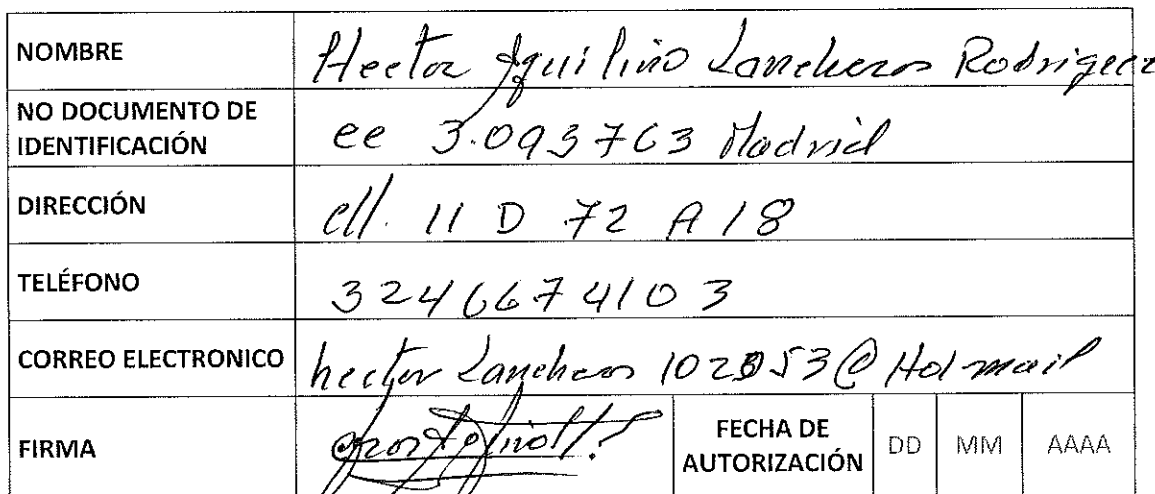 NOMBRE Hector Aquilino Lancheros Rodriguez
NO DOCUMENTO DE
IDENTIFICACIÓN cc 3.093763 Madrid
DIRECCIÓN cll. 11 D 72 A 18
TELÉFONO 3246674103
CORREO ELECTRONICO hector Lancheros @ Hotmail
FIRMA FECHA DE
AUTORIZACIÓN DD MM AAAA